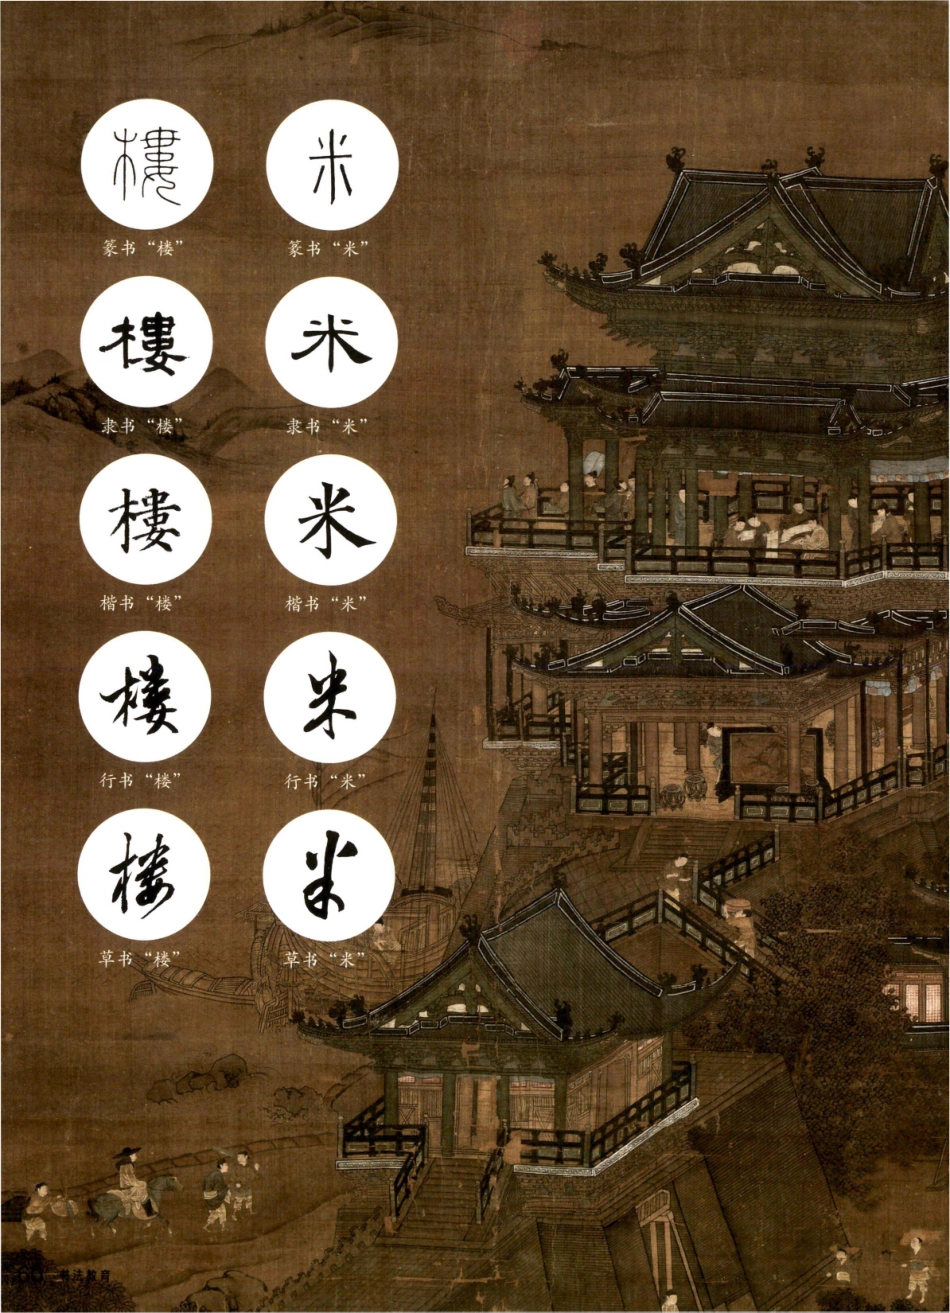 樓 米
篆书“楼” 篆书“米”
樓 米
隶书“楼” 隶书“米”
樓 米
楷书“楼” 楷书“米”
樓 米
行书“楼” 行书“米”
楼 米
草书“楼” 草书“米”
书法教育